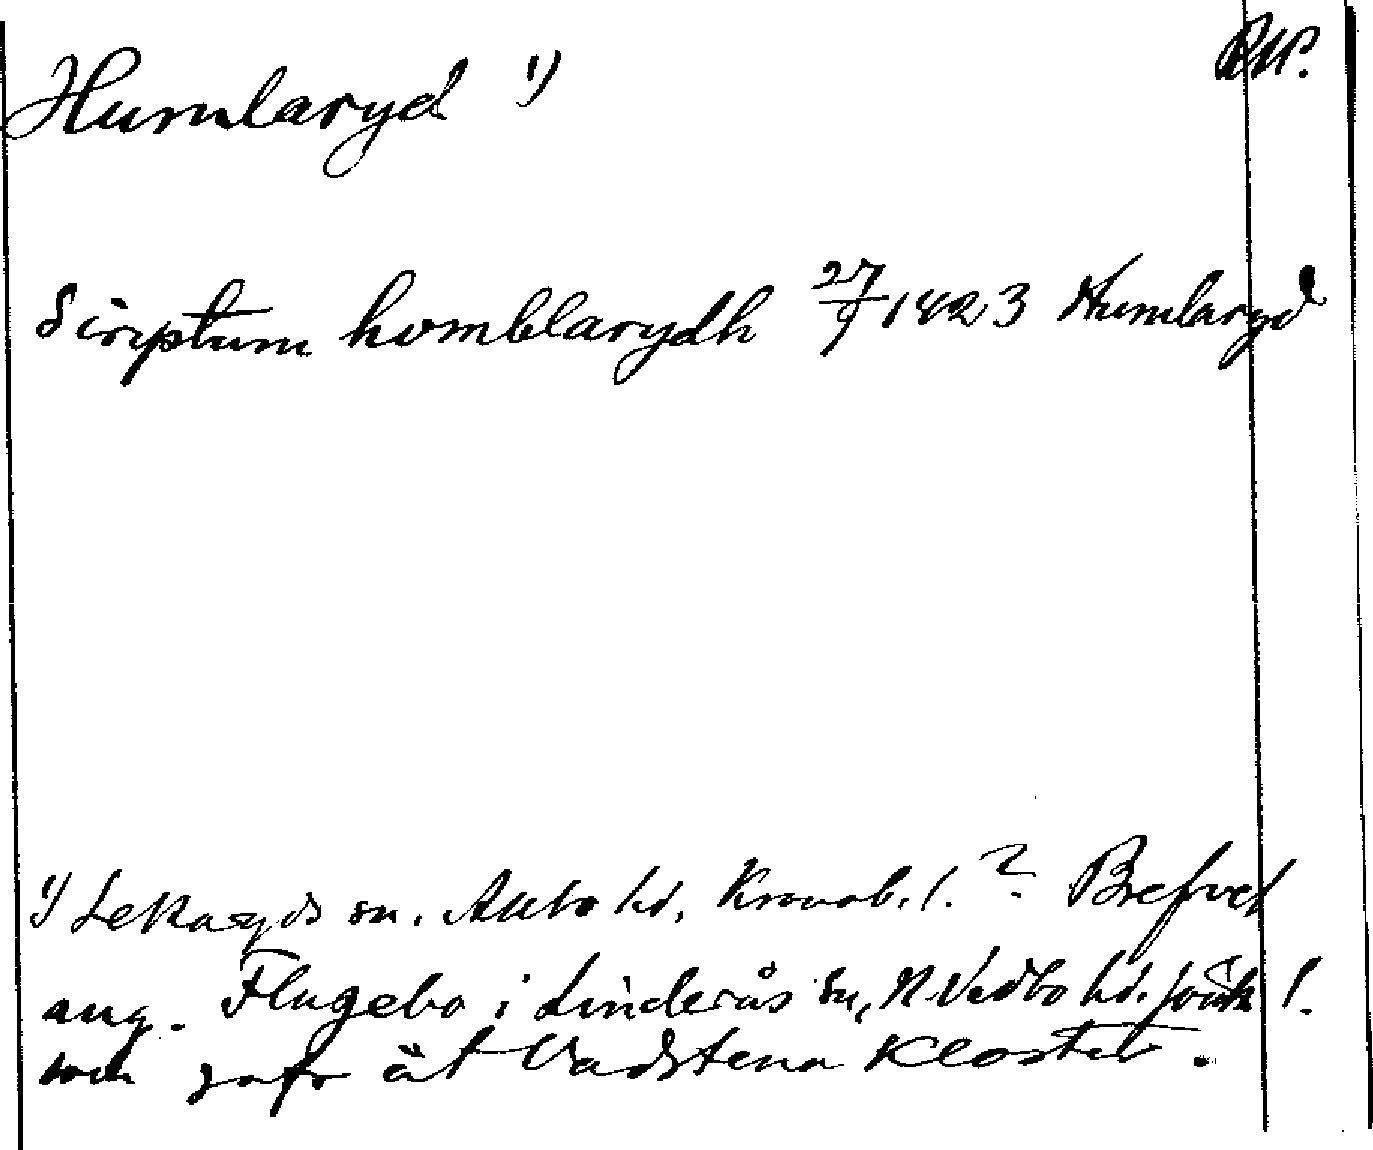 Humlaryd 1) RAP.
Scriptum homblarydh 27/9 1423 Humlaryd
1) Lekaryds sn. Allbo hd, Kronob. l. ? Brefvet
ang. Flugebo i Linderås sn, N Vedbo hd. Jönk l.
som gafs åt Vadstena Kloster.